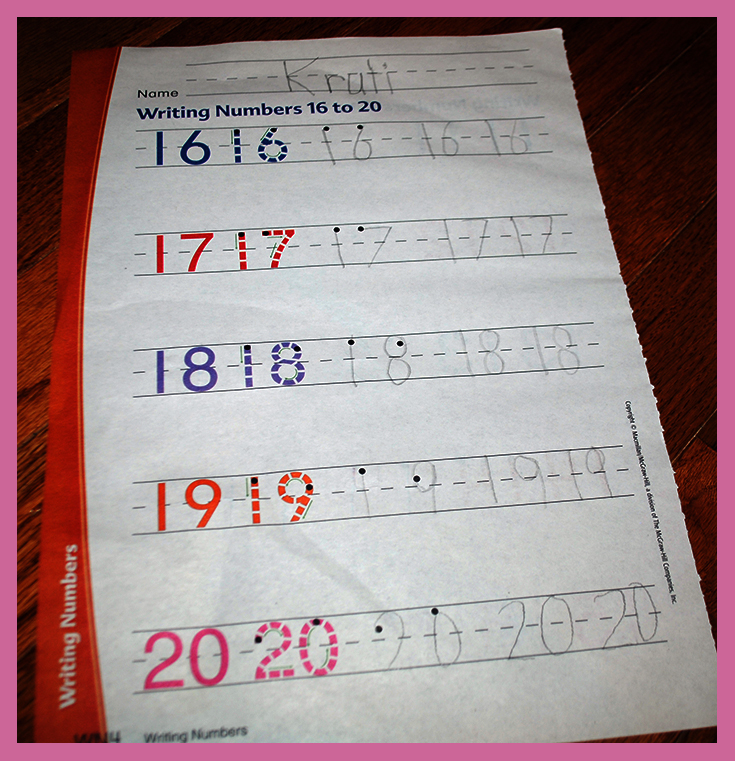 Name Krati
Writing Numbers 16 to 20
16 16 16 16 16
17 17 17 17 17
18 18 18 18 18
19 19 19 19 19
20 20 20 20 20
Copyright © Macmillan/McGraw-Hill, a division of The McGraw-Hill Companies, Inc.
Writing Numbers
Writing Numbers